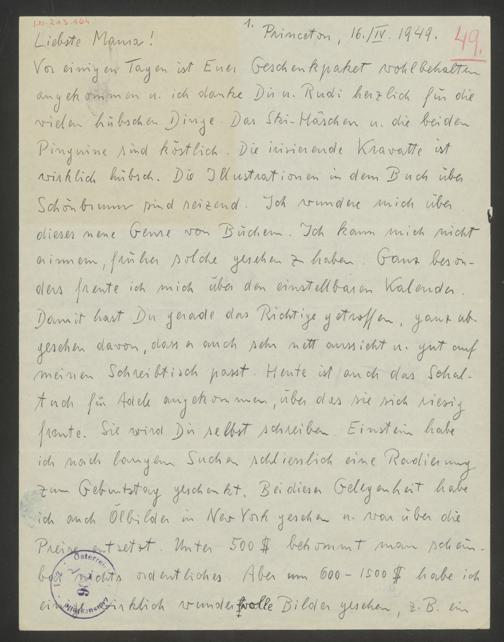 1.
Princeton, 16./IV. 1949.
49.
Liebste Mama!
Vor einigen Tagen ist Euer Geschenkpaket wohlbehalten
angekommen u. ich danke Dir u. Rudi herzlich für die
vielen hübschen Dinge. Das Ski-Häschen u. die beiden
Pinguine sind köstlich. Die irisierende Kravatte ist
wirklich hübsch. Die Illustrationen in dem Buch über
Schönbrunn sind reizend. Ich wundere mich über
dieses neue Genre von Büchern. Ich kann mich nicht
erinnern, früher solche gesehen z haben. Ganz beson-
ders freute ich mich über den einstellbaren Kalender.
Damit hast Du gerade das Richtige getroffen, ganz ab-
gesehen davon, dass er auch sehr nett aussieht u. gut auf
meinen Schreibtisch passt. Heute ist auch das Schal-
tuch für Adele angekommen, über das sie sich riesig
freute. Sie wird Dir selbst schreiben. Einstein habe
ich nach langem Suchen schliesslich eine Radierung
zum Geburtstag geschenkt. Bei dieser Gelegenheit habe
ich auch Ölbilder in New York gesehen u. war über die
Preise entsetzt. Unter 500 $ bekommt man schein-
bar nichts ordentliches. Aber um 600-1500 $ habe ich
wirklich wundervolle Bilder gesehen, z.B. ein